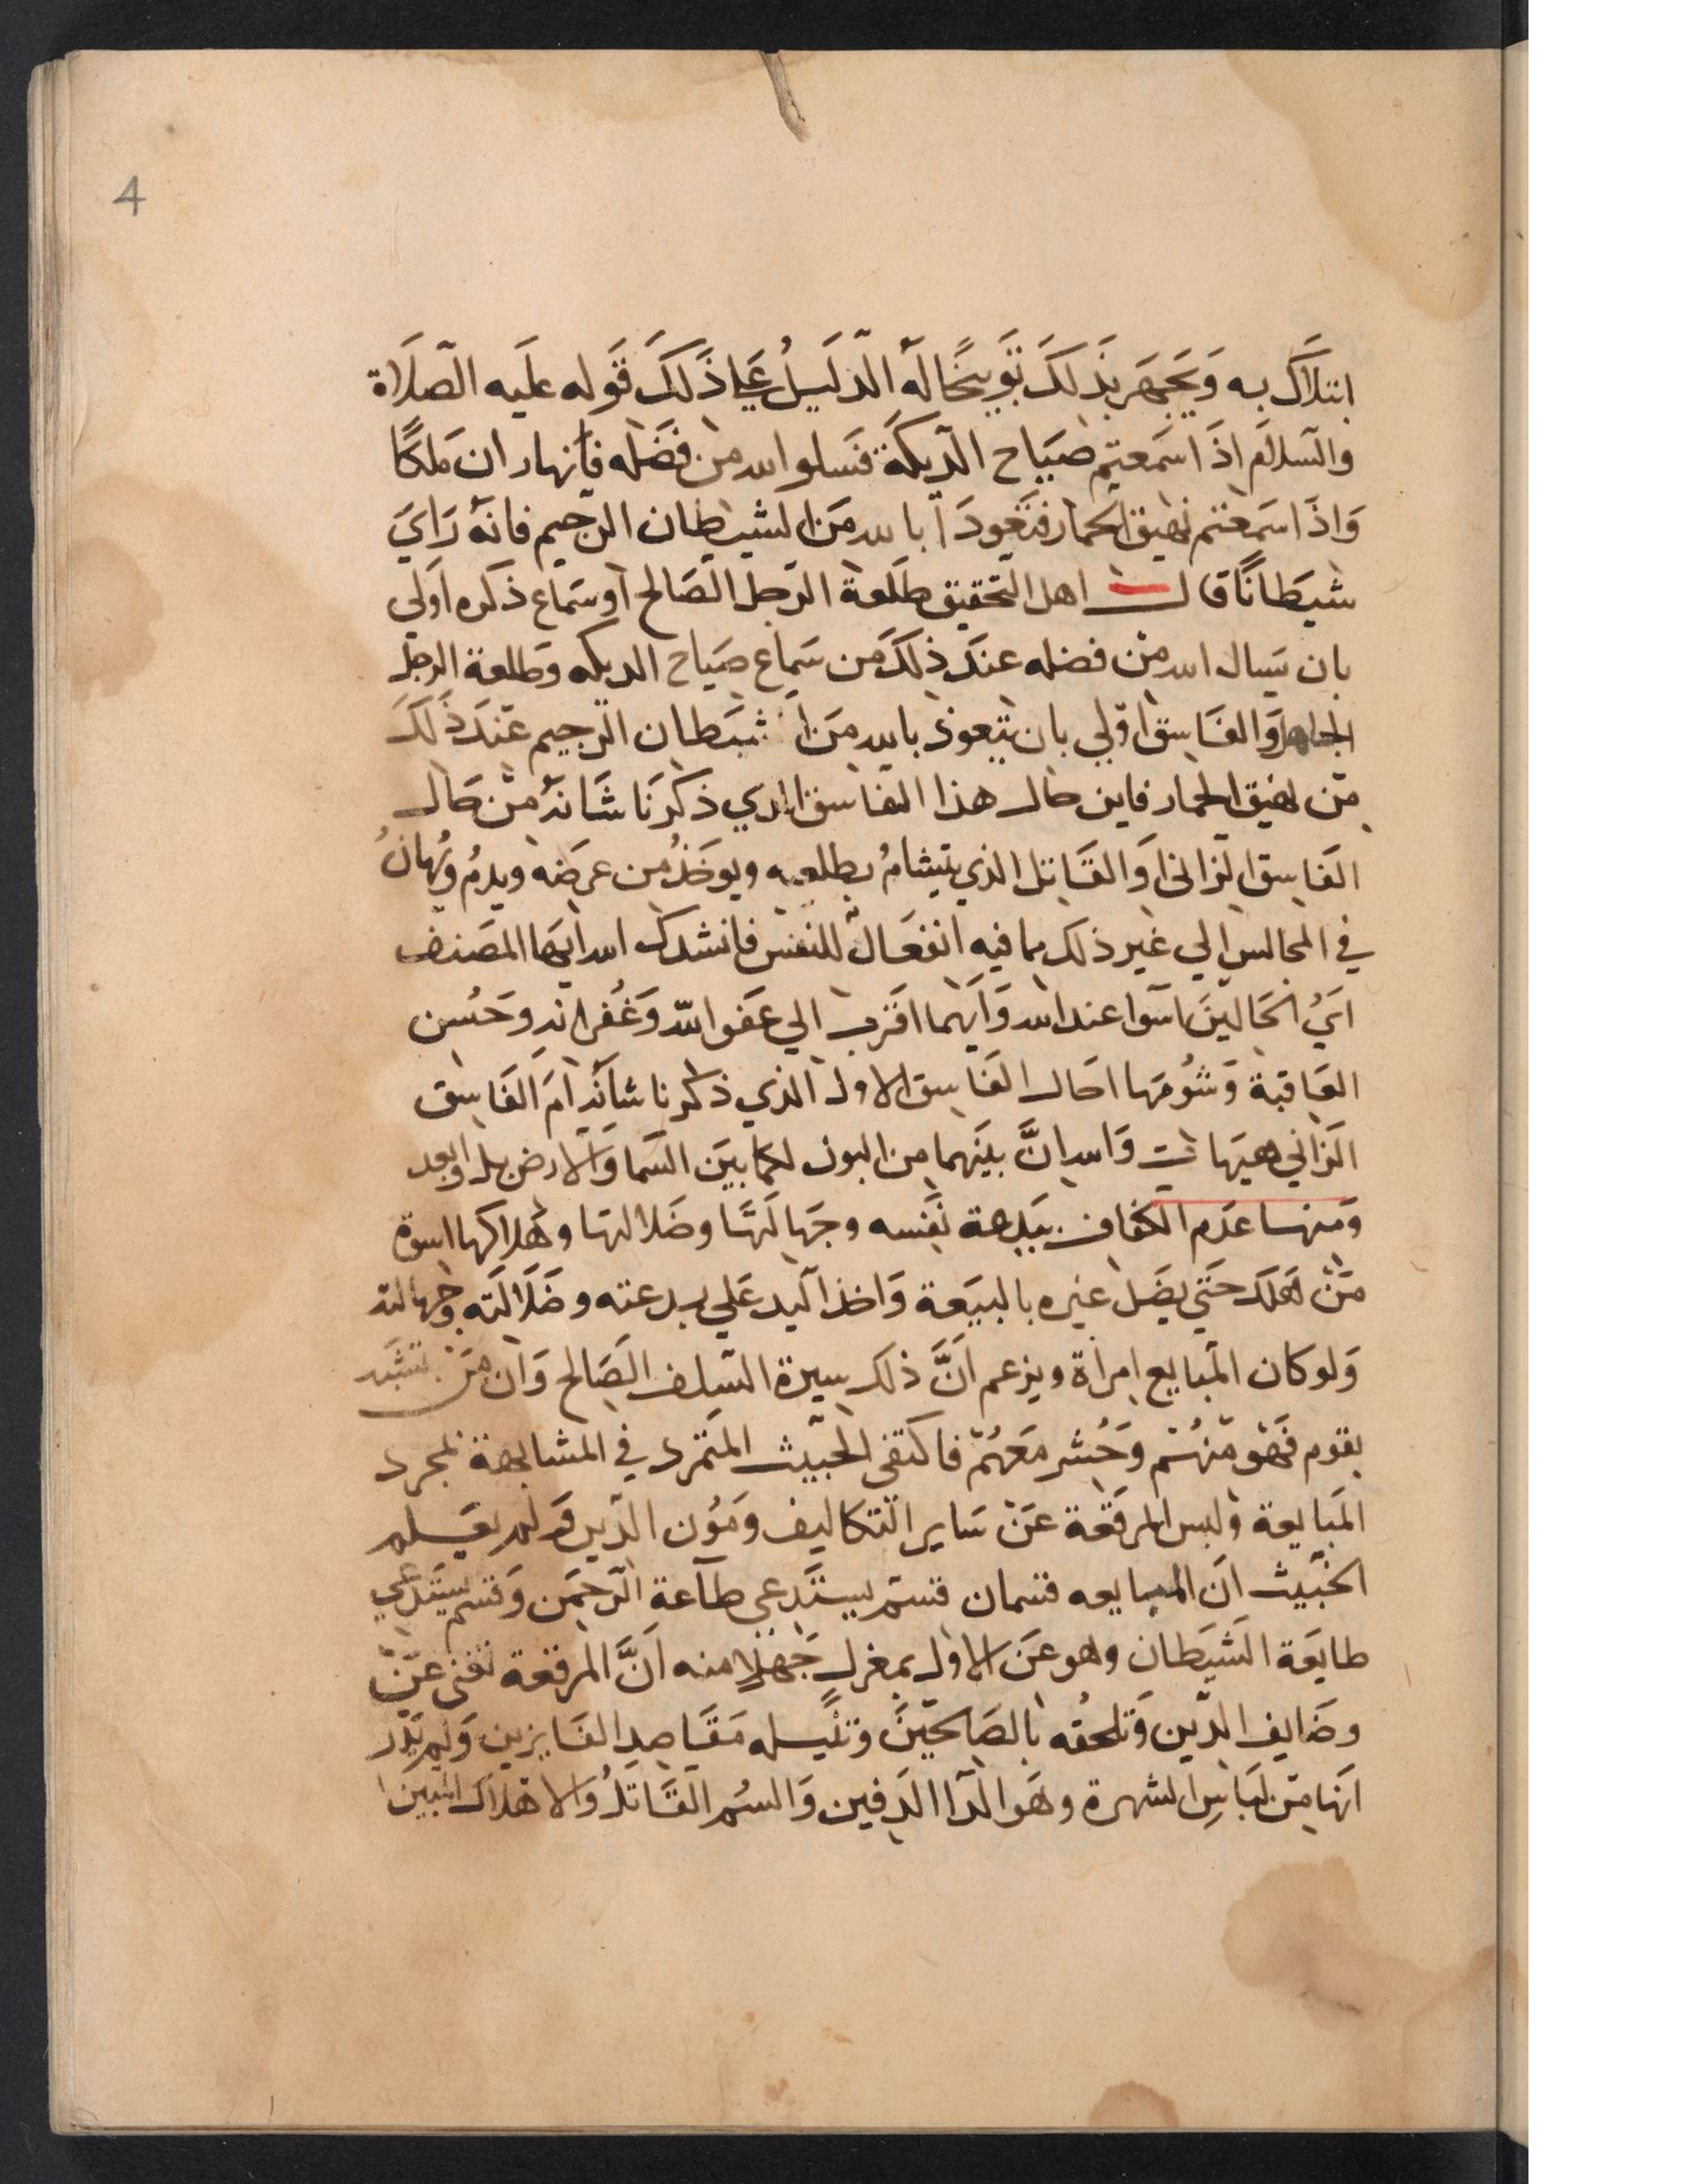 4
ابتلاك به وَيَجهَر بذَلكَ تَوبيخًا لَه الدّليلُ عَلي ذَلكَ قَوله عليَه الصَلَاة
والسلَام اذَا سَمَعتم صيَاح الديكَة فسَلوا الله من فضَله فأنها ران مَلكًا
وَاذَا سَمَعتم نهيق الحمار فتَعَودَا بالله مَن الشيطان الرجيم فانهَ رَاي
شيطَانًا قال اهل التحقيق طلَعة الرجل الصَالح او سَماع ذكره اولي
بان يَسال الله من فضله عندَ ذلكَ مَن سَماع صَياح الديكه وطلعة الرجل
الجاهل وَالفَاسِق اوَلي بان يتعوذ بالله مَن الشَيَطان الرجيم عَندَ ذَلكَ
مَن نهيق الحمار فاين حال هذا الفاسق الذي ذكرنَا شَانهُ مَن حَال
الفَاسِق الزاني اوَ القَاتل الذي يتشامُ بطلعته ويوخَذُ من عرضَه ويذمُ ويُهانُ
في المجالس الي غير ذلك بما فيه انفعَالٌ للنفس فانشدك الله ايهَا المصَنف
ايُ الحَالينَ اسوَا عند الله وَايَهما اقرَب الي عَفو اللّه وَغُفرانه وحَسُن
العَاقبة وَشُومَها احَال الفَاسِق الاول الذي ذكرنا شأنه امَ الفَاسِق
الزَاني هيَهات وَالله انَّ بينَهما من البون لكما بيَن السَما وَالارض بل وابعد
وَمنها عدَم الكفاف ببدعة نفَسه وجَهالَتها وضَلالتها وهَلاكها اسوة
مَن هَلك حتَي يضَل غيره بالبيَعة وَاخذ اليد عَلي بدعته وضَلَالَته وجهالته
وَلو كان المبَايع امراَة ويزعم انَّ ذلك سيرة السَلف الصَالح وَان من تشبه
بقوم فَهوَ منهُم وَحُشر معَهُم فاكتفي الخبيث المتمَرد في المشابهة بمجرد
المَبايعة ولبس المرقعَة عَن سَاير التكاليف ومَؤن الدّين وَلم يعَلم
الخبَيث انَ المبايعه قسمان قسم يستَدعي طاَعة الرَحمَن وَقسم يستَدعي
طايَعة الشَيطان وهو عَن الاول بمعزل جَهلا منه انَّ المرقعة تغني عَن
وضَايف الدّين وَتلحقُه بالصَالحيَن وتنُيله مَقَاصِد الفَايزين وَلم يَدر
انهَا مَن لبَاسِ الشهرة وهَوَ الدَّا الدَفين وَالسُم القَاتلُ وَالاهلاك المبين